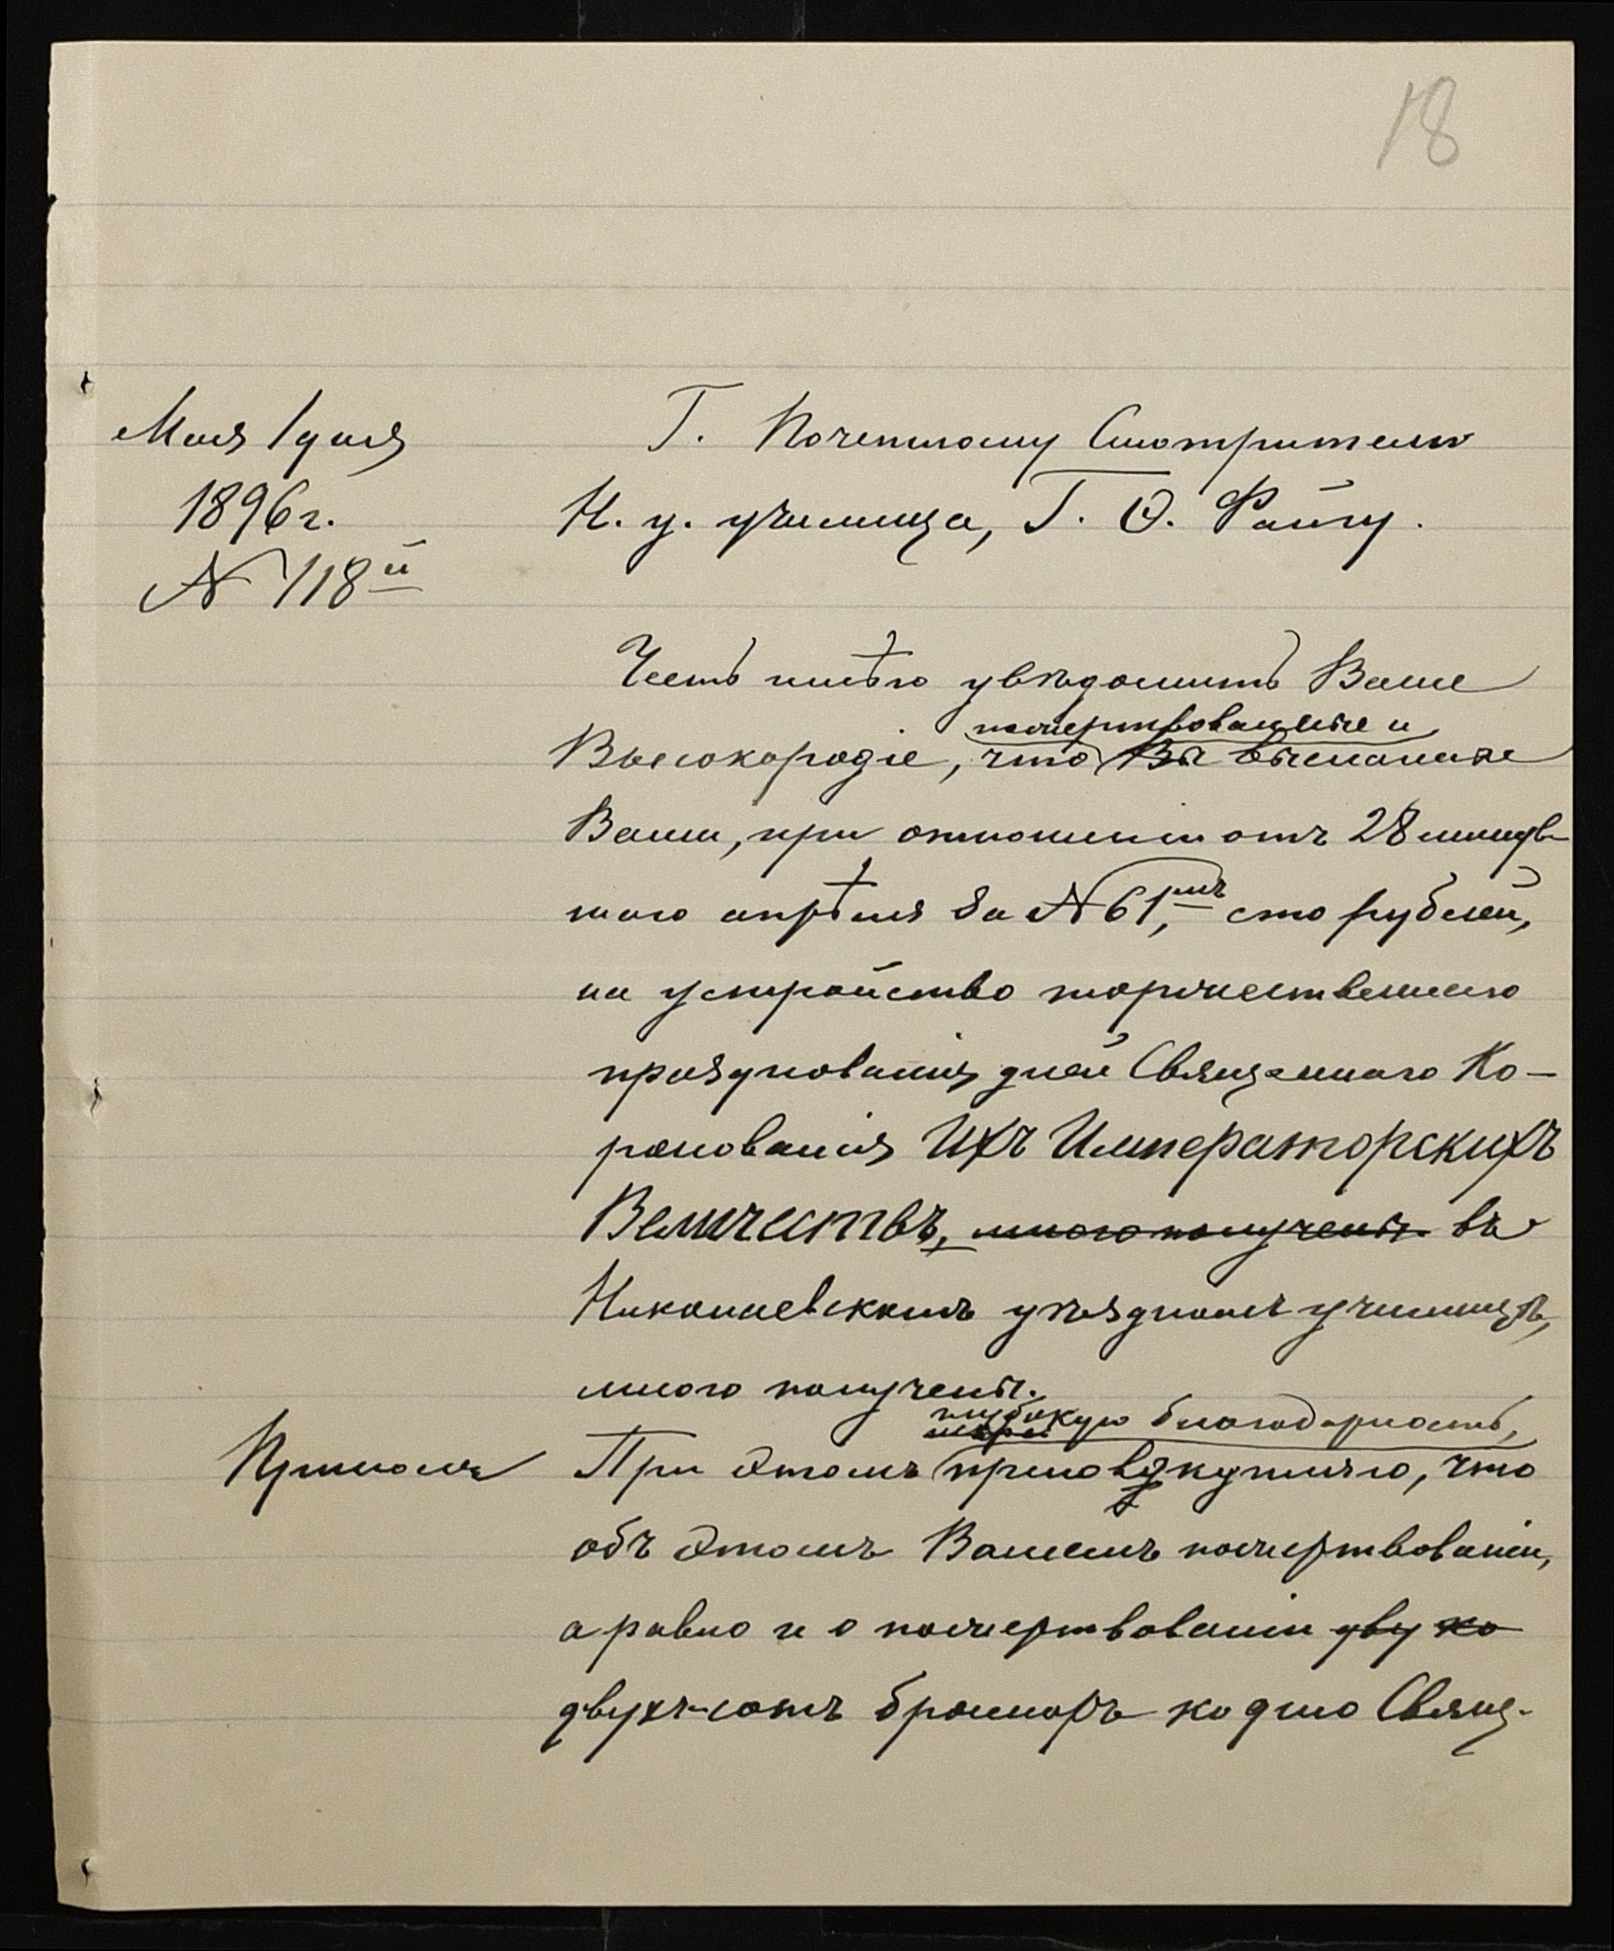 18
Мая 1 дня
1896 г.
№ 118й
Г. Почетному Смотрителю
Н. у. училища, Г. Ѳ. Файгу.
Честь имѣю увѣдомить Ваше
пожертвованные и
Высокородіе, что Вы высланные
Вами, при отношеніи отъ 28 минув-
шаго апрѣля за № 61, сто рублей,
на устройство торжественнаго
празднованія дней Священнаго Ко-
ронованія Ихъ Императорскихъ
Величествъ, мною получены въ
Николаевскомъ уѣздномъ училищѣ,
мною получены.
глубокую благодарность,
При этомъ присовокупляю, что
объ этомъ Вашемъ пожертвованіи,
а равно и о пожертвованіи дву ко
двухъ-сотъ брошюръ ко дню Свящ-